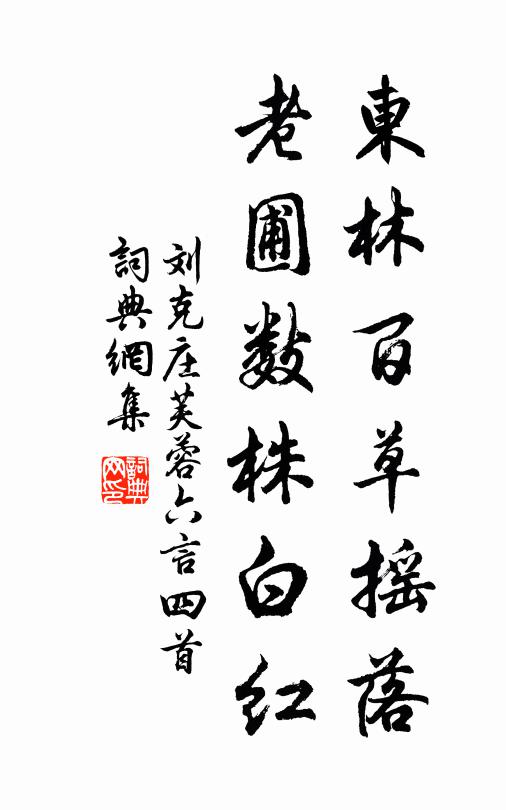 東林百草摇落
老圃数株白红
刘克庄芙蓉六言四首
詞典網集
詞典网印